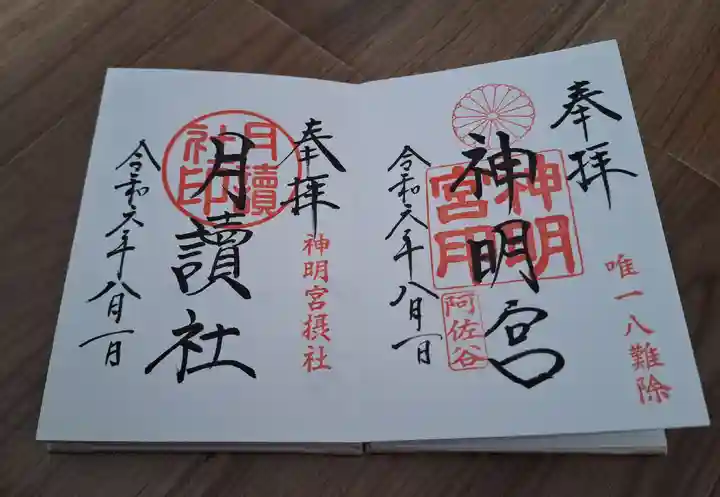 奉拝
唯一八難除
神明宮
神明宮印
阿佐谷
令和六年八月一日
奉拝
神明宮摂社
月讀社
月讀社印
令和六年八月一日